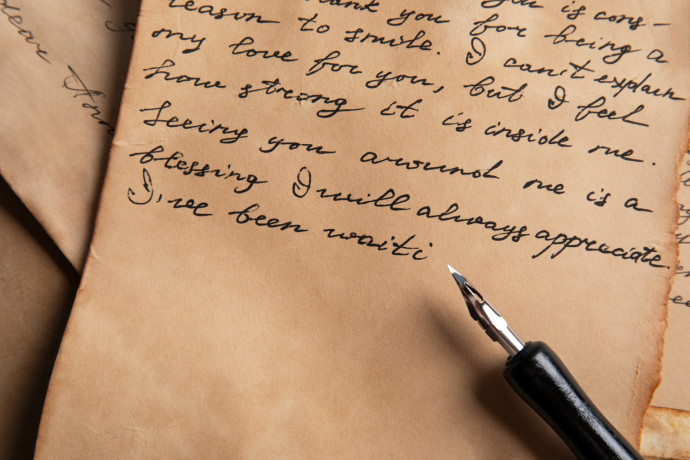 thank you for you is cons-
reason to smile. for being a
my love for you, I can't explain
how strong it is inside me. but I feel
Seeing you around me is a
blessing I will always appreciate.
I've been waiti
dear Ann